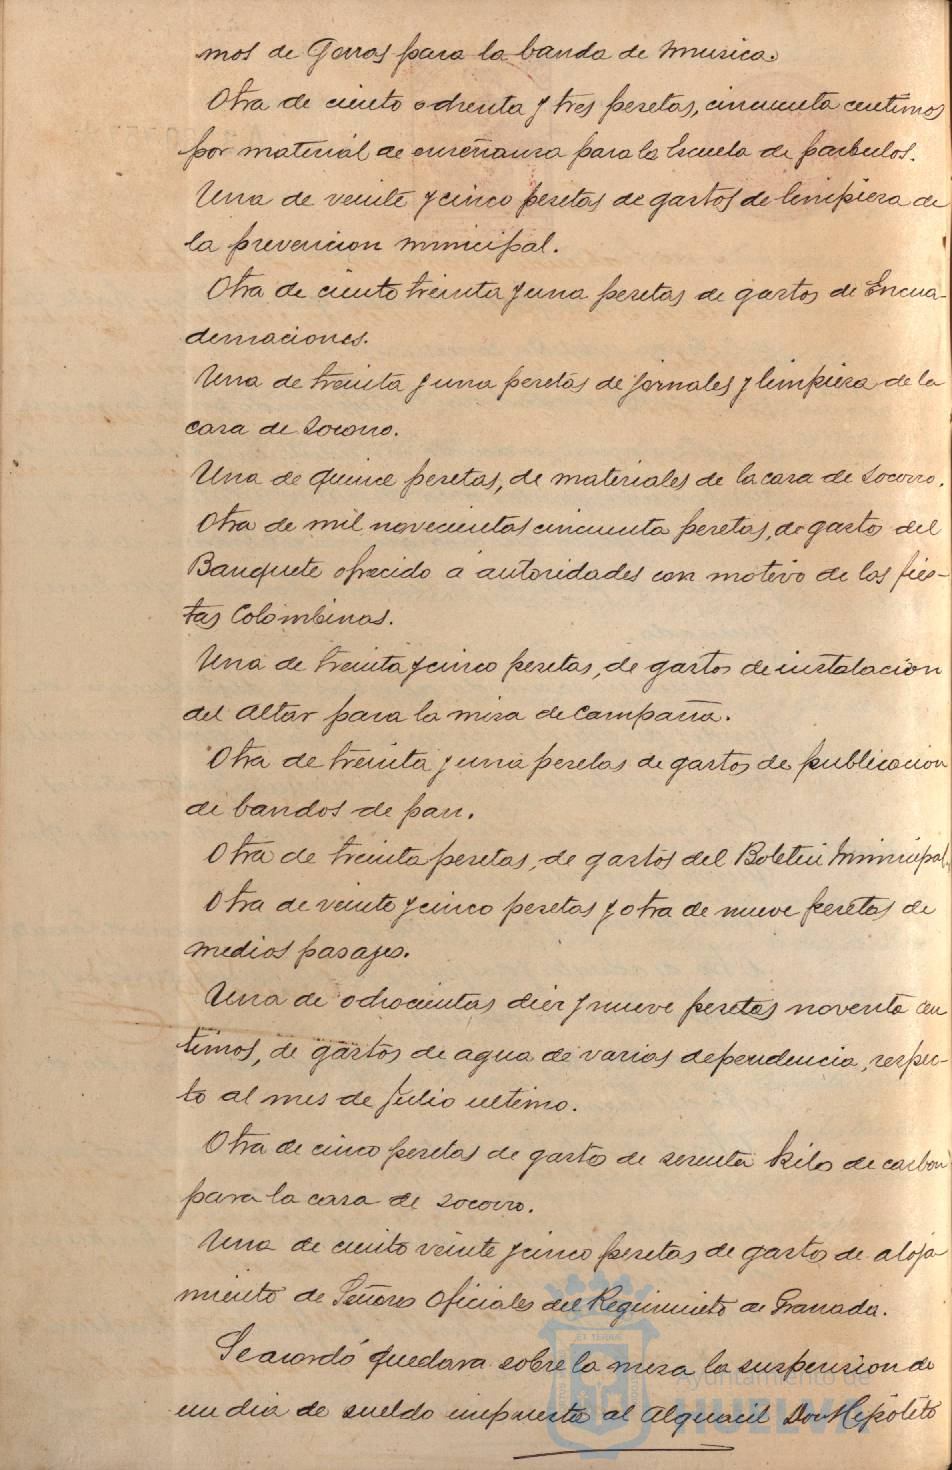 mos de Gorras para la banda de musica.
Otra de ciento ochenta y tres pesetas, cincuenta centimos
por material de enseñanza para la Escuela de parbulos.
Una de veinte y cinco pesetas de gastos de limpieza de
la prevencion municipal.
Otra de ciento treinta y una pesetas de gastos de Encua-
dernaciones.
Una de treinta y una pesetas de jornales y limpieza de la
casa de Socorro.
Una de quince pesetas, de materiales de la casa de Socorro.
Otra de mil novecientas cincuenta pesetas, de gastos del
Banquete ofrecido á autoridades con motivo de las fies-
tas Colombinas.
Una de treinta y cinco pesetas, de gastos de instalacion
del Altar para la misa de Campaña.
Otra de treinta y una pesetas de gastos de publicacion
de bandos de pan.
Otra de treinta pesetas, de gastos del Boletin Municipal.
Otra de veinte y cinco pesetas y otra de nueve pesetas de
medios pasajes.
Una de ochocientas diez y nueve pesetas noventa cen
timos, de gastos de agua de varias dependencia, respec-
to al mes de Julio ultimo.
Otra de cinco pesetas de gastos de sesenta kilos de carbon
para la casa de Socorro.
Una de ciento veinte y cinco pesetas de gastos de aloja
miento de Señores Oficiales del Regimieto de Granada.
Se acordó quedara sobre la mesa la suspension de
un dia de sueldo impuesta al Alguacil Don Hipolito
ET TERRAE
Ayuntamiento de
HUELVA